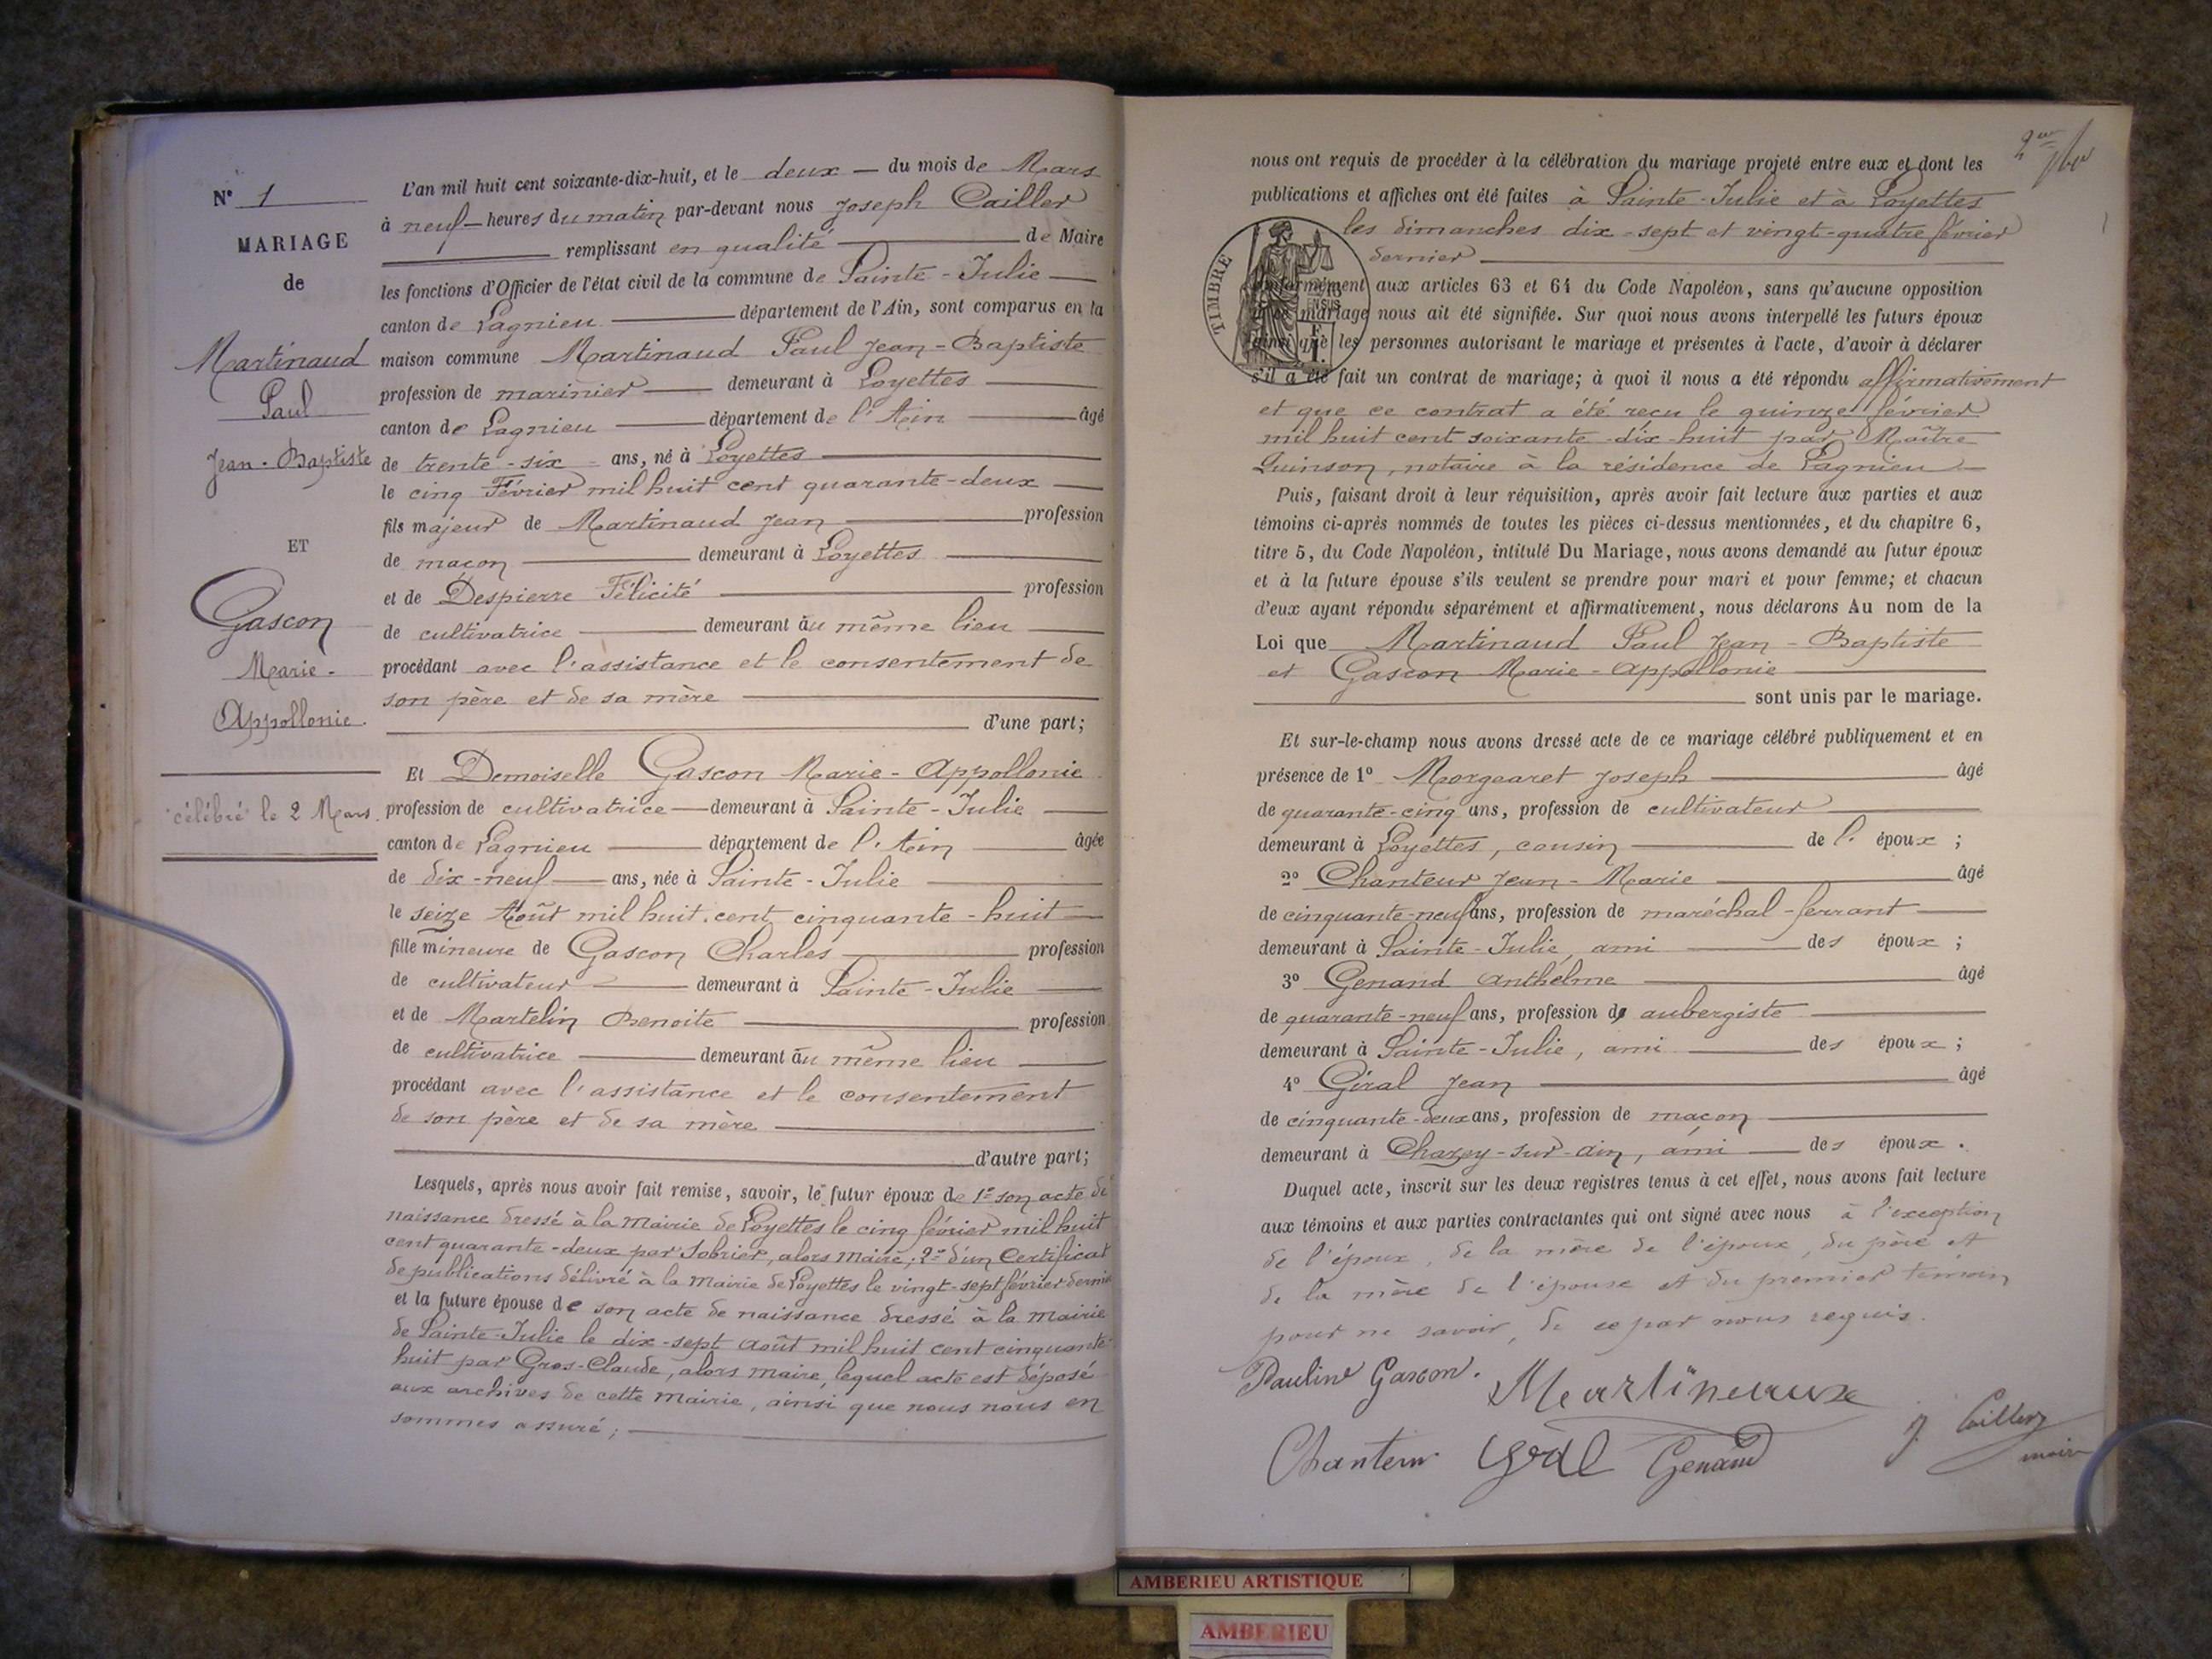 N° 1
MARIAGE
de
Martinaud
Paul
Jean-Baptiste
ET
Gascon
Marie-
Appollonie.
célébré le 2 Mars.
L'an mil huit cent soixante-dix-huit, et le deux — du mois de Mars
à neuf — heures du matin par-devant nous Joseph Cailler
remplissant en qualité de Maire
les fonctions d'Officier de l'état civil de la commune de Sainte-Julie
canton de Lagnieu département de l'Ain, sont comparus en la
maison commune Martinaud Paul Jean-Baptiste
profession de marinier demeurant à Loyettes
canton de Lagnieu département de l'Ain âgé
de trente-six ans, né à Loyettes
le cinq Février mil huit cent quarante-deux
fils majeur de Martinaud Jean profession
de maçon demeurant à Loyettes
et de Despierre Félicité profession
de cultivatrice demeurant au même lieu
procédant avec l'assistance et le consentement de
son père et de sa mère
d'une part;
Et Demoiselle Gascon Marie-Appollonie
profession de cultivatrice demeurant à Sainte-Julie
canton de Lagnieu département de l'Ain âgée
de dix-neuf ans, née à Sainte-Julie
le seize Août mil huit cent cinquante-huit
fille mineure de Gascon Charles profession
de cultivateur demeurant à Sainte-Julie
et de Martelin Benoite profession
de cultivatrice demeurant au même lieu
procédant avec l'assistance et le consentement
de son père et de sa mère
d'autre part;
Lesquels, après nous avoir fait remise, savoir, le futur époux de 1° son acte de
naissance dressé à la Mairie de Loyettes le cinq février mil huit
cent quarante-deux par Sobrier, alors Maire; 2° d'un Certificat
de publications délivré à la Mairie de Loyettes le vingt-sept février dernier
et la future épouse de son acte de naissance dressé à la Mairie
de Sainte-Julie le dix-sept Août mil huit cent cinquante-
huit par Gros-Claude, alors maire, lequel acte est déposé
aux archives de cette Mairie, ainsi que nous nous en
sommes assuré;
nous ont requis de procéder à la célébration du mariage projeté entre eux et dont les
publications et affiches ont été faites à Sainte-Julie et à Loyettes
les dimanches dix-sept et vingt-quatre février
dernier
TIMBRE
conformément aux articles 63 et 64 du Code Napoléon, sans qu'aucune opposition
mariage nous ait été signifiée. Sur quoi nous avons interpellé les futurs époux
ainsi que les personnes autorisant le mariage et présentes à l'acte, d'avoir à déclarer
s'il a été fait un contrat de mariage; à quoi il nous a été répondu affirmativement
et que ce contrat a été reçu le quinze février
mil huit cent soixante-dix-huit par Maître
Quinson, notaire à la résidence de Lagnieu
Puis, faisant droit à leur réquisition, après avoir fait lecture aux parties et aux
témoins ci-après nommés de toutes les pièces ci-dessus mentionnées, et du chapitre 6,
titre 5, du Code Napoléon, intitulé Du Mariage, nous avons demandé au futur époux
et à la future épouse s'ils veulent se prendre pour mari et pour femme; et chacun
d'eux ayant répondu séparément et affirmativement, nous déclarons Au nom de la
Loi que Martinaud Paul Jean-Baptiste
et Gascon Marie-Appollonie
sont unis par le mariage.
Et sur-le-champ nous avons dressé acte de ce mariage célébré publiquement et en
présence de 1° Morgearet Joseph âgé
de quarante-cinq ans, profession de cultivateur
demeurant à Loyettes, cousin de l' époux ;
2° Chanteur Jean-Marie âgé
de cinquante-neuf ans, profession de maréchal-ferrant
demeurant à Sainte-Julie, ami des époux ;
3° Genand Anthelme âgé
de quarante-neuf ans, profession de aubergiste
demeurant à Sainte-Julie, ami des époux ;
4° Giral Jean âgé
de cinquante-deux ans, profession de maçon
demeurant à Chazey-sur-Ain, ami des époux.
Duquel acte, inscrit sur les deux registres tenus à cet effet, nous avons fait lecture
aux témoins et aux parties contractantes qui ont signé avec nous à l'exception
de l'époux, de la mère de l'époux, du père et
de la mère de l'épouse et du premier témoin
pour ne savoir, de ce par nous requis.
Pauline Gascon. Martineaux
Chanteur Genand J. Cailler
maire
AMBERIEU ARTISTIQUE
AMBERIEU